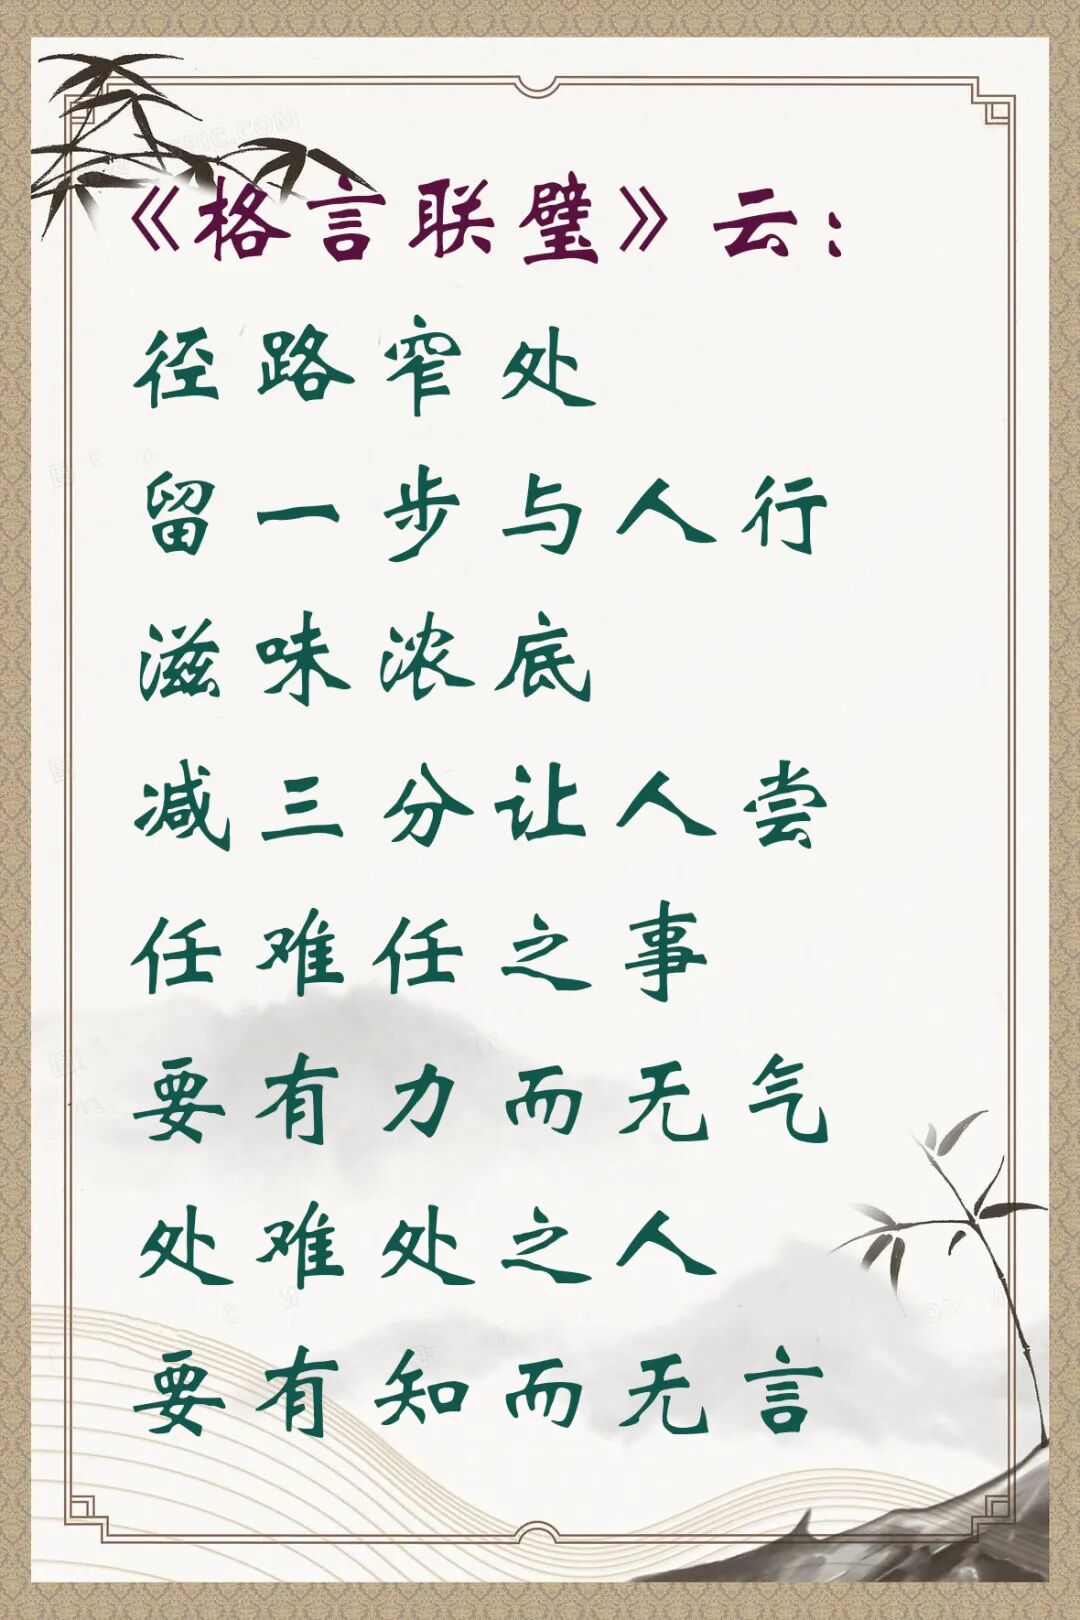 《格言联璧》云：
径路窄处
留一步与人行
滋味浓底
减三分让人尝
任难任之事
要有力而无气
处难处之人
要有知而无言